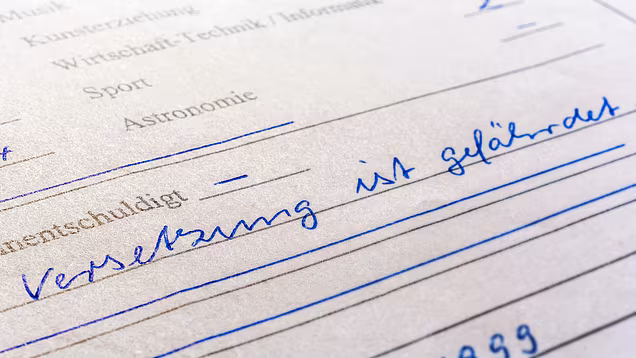 Musik
Kunsterziehung
Wirtschaft-Technik / Informatik
Sport
Astronomie
nentschuldigt –
Versetzung ist gefährdet
999